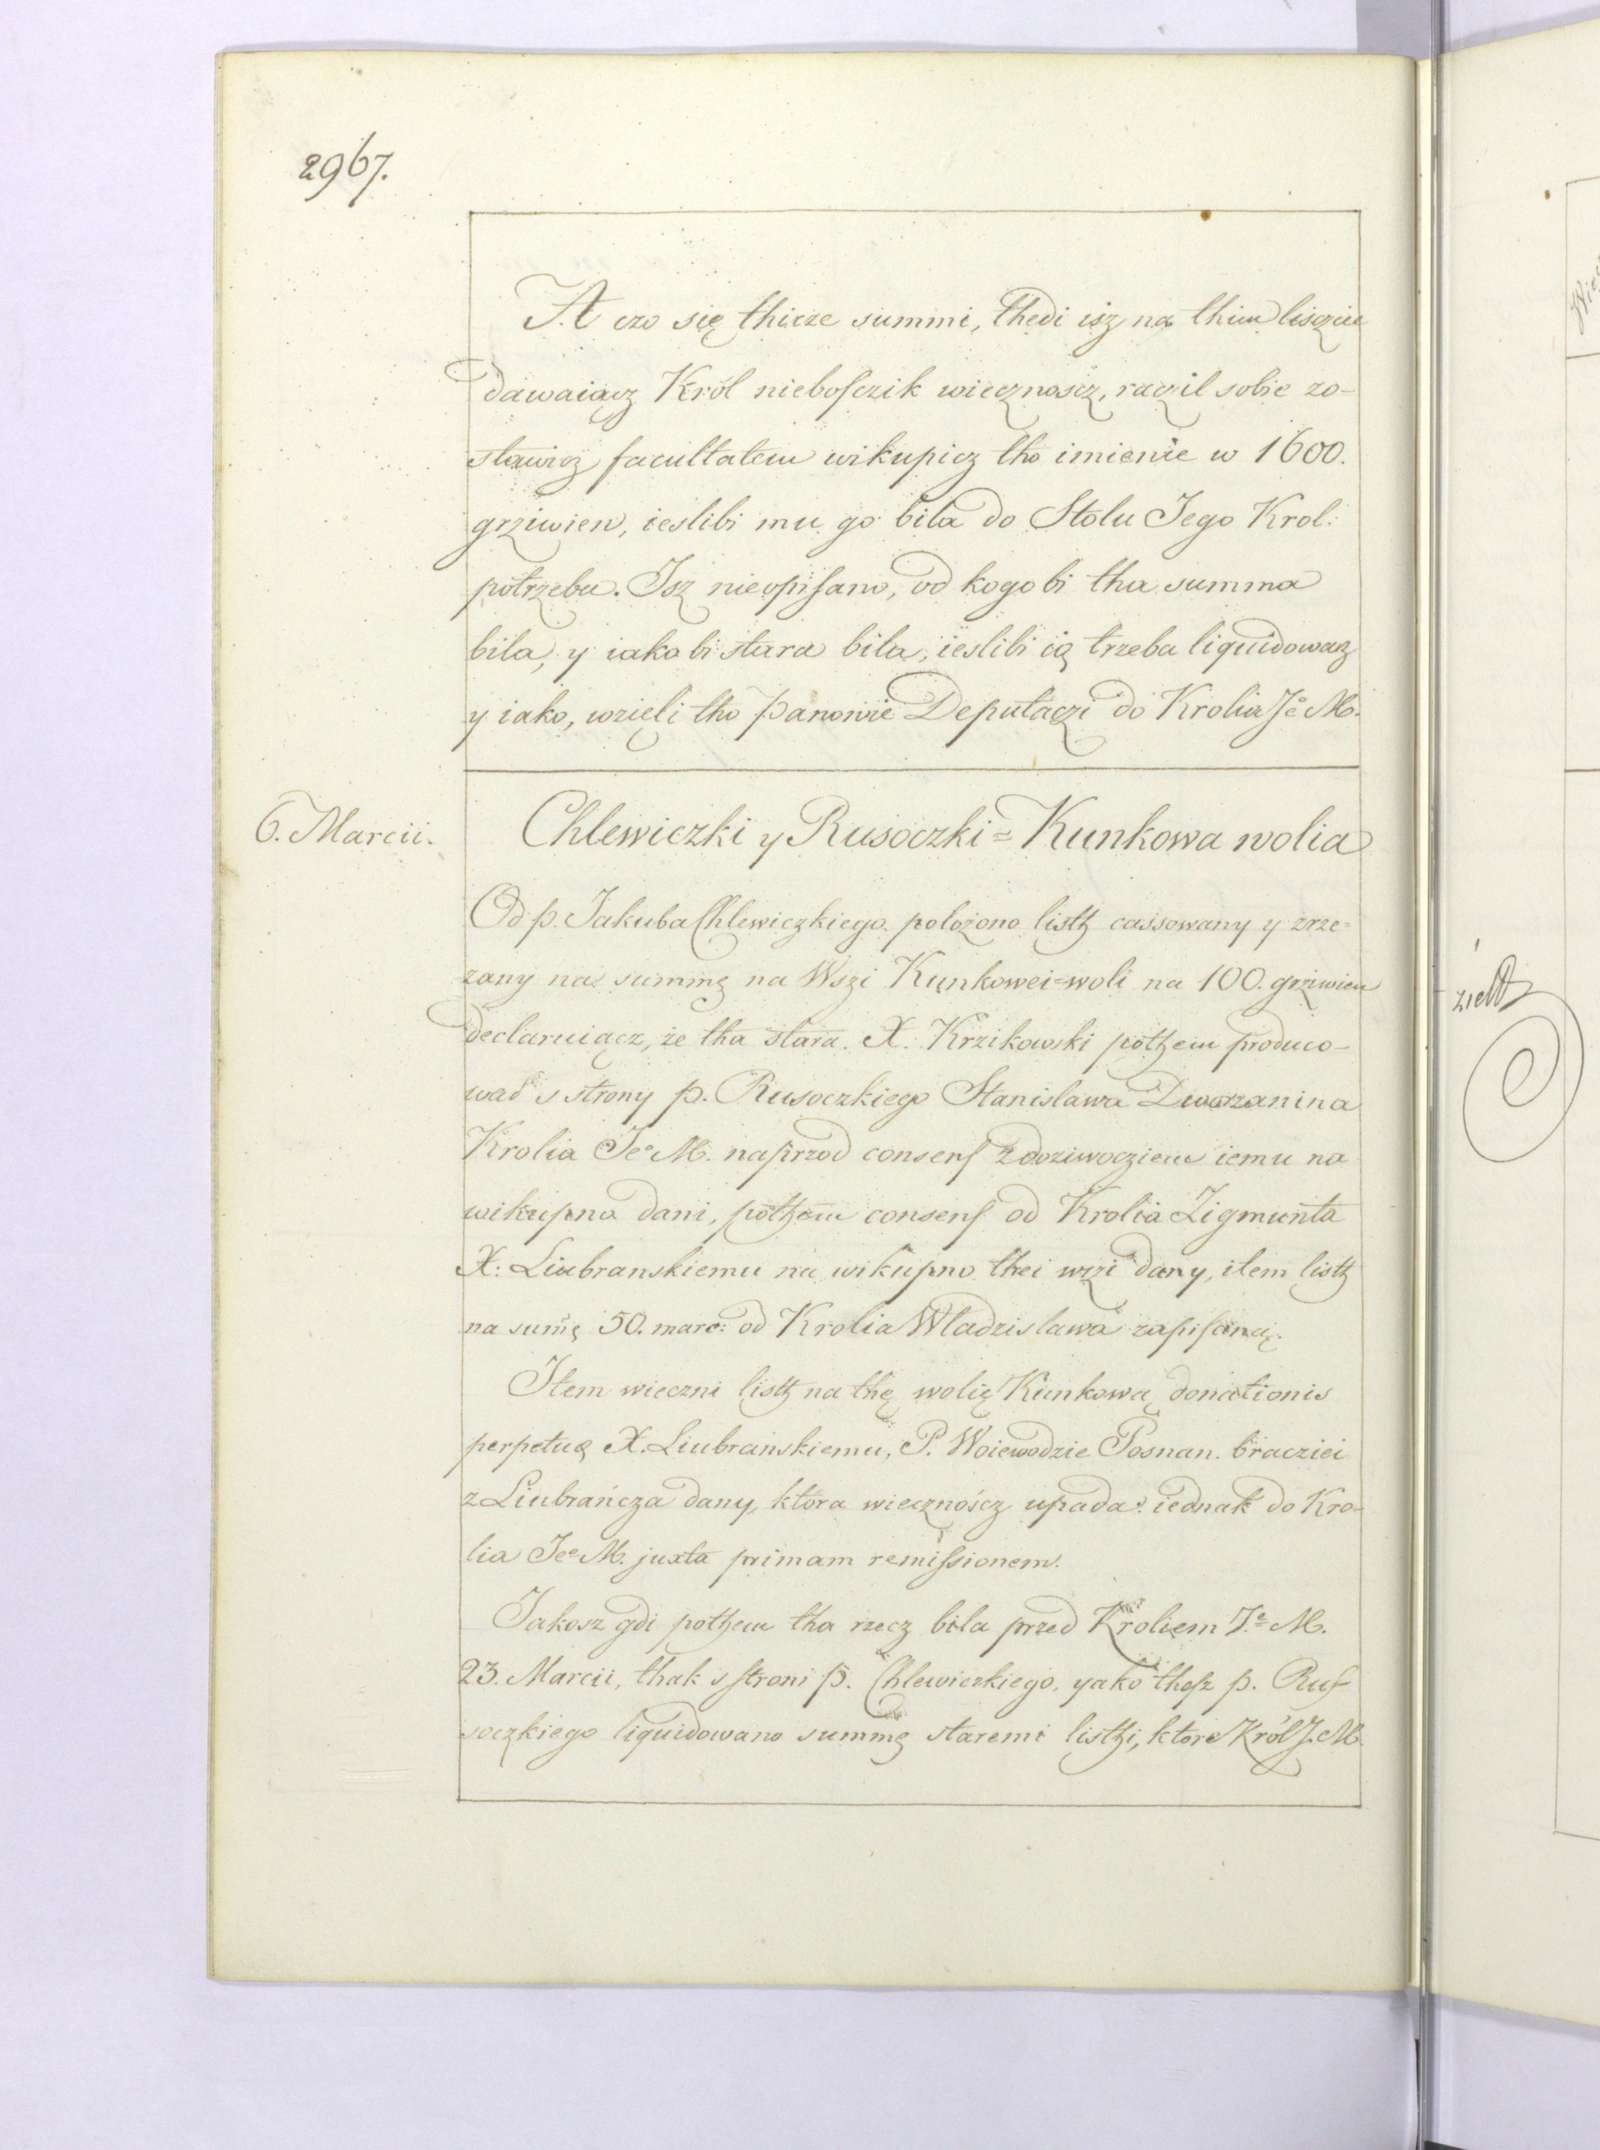 2967.
A czo się thicze summi, thedi isz na thim lisczie
dawaiącz Król niebosczik wiecznoscz, raczil sobie zo-
stawicz facultatem wikupicz tho imienie w 1600.
grziwien, ieslibi mu go bila do Stolu Jego Krol:
potrzeba. Isz nieopisano, od kogo bi tha summa
bila, y iako bi stara bila, ieslibi ią trzeba liquidowacz
y iako, wzięli tho panowie Deputaczi do Krolia Je M.
6. Marcii.
Chlewiczki y Rusoczki = Kunkowa wolia
Od p. Jakuba Chlewiczkiego położono listh cassowany y zrze-
zany na summę na Wszi Kunkowei=woli na 100. grziwien
declaruiącz, że tha stara. X. Krzikowski pothem produco-
wał s strony p. Rusoczkiego Stanislawa Dworzanina
Krolia Je M. naprzod consens z doziwocziem iemu na
wikupno dani, pothem consens od Krolia Zigmunta
X: Liubranskiemu na wikupno thei wszi dany, item listh
na sum̃ę 50. marc: od Krolia Wladzislawa zapisaną.
Item wieczni listh na thę wolię Kunkową donationis
perpetuę X. Liubrańskiemu, P. Woiewodzie Posnan. bracziei
z Liubrańcza dany, ktora wiecznoścz upada: iednak do Kro-
lia Je M. juxta primam remissionem.
Jakosz gdi pothem tha rzecz bila przed Kroliem Je M.
23. Marcii, thak s stroni p. Chlewiczkiego, yako thesz p. Rus-
soczkiego liquidowano summę staremi listhi, ktore Król J. M.